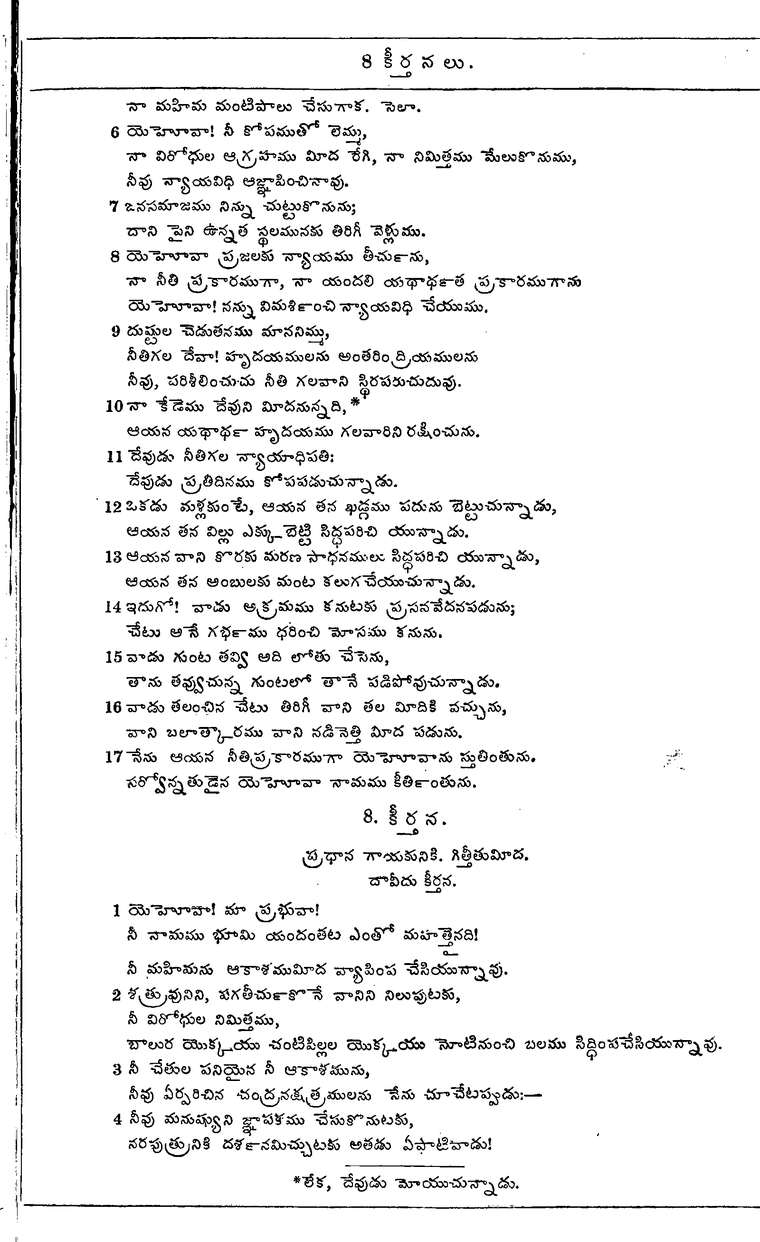 8 కీర్తనలు.
నా మహిమ మంటిపాలు చేసుగాక. సెలా.
6 యెహోవా! నీ కోపముతో లెమ్ము,
నా విరోధుల ఆగ్రహము మీద రేగి, నా నిమిత్తము మేలుకొనుము,
నీవు న్యాయవిధి ఆజ్ఞాపించినావు.
7 జనసమాజము నిన్ను చుట్టుకొనును;
దాని పైని ఉన్నత స్థలమునకు తిరిగీ వెళ్లుము.
8 యెహోవా ప్రజలకు న్యాయము తీచుFను,
నా నీతి ప్రకారముగా, నా యందలి యథాథFత ప్రకారముగాను
యెహోవా! నన్ను విమశిFంచి న్యాయవిధి చేయుము.
9 దుష్టుల చెడుతనము మాననిమ్ము,
నీతిగల దేవా! హృదయములను అంతరింద్రియములను
నీవు, పరిశీలించుచు నీతి గలవాని స్థిరపరుచుదువు.
10 నా కేడెము దేవుని మీదనున్నది,*
ఆయన యథాథF హృదయము గలవారిని రక్షించును.
11 దేవుడు నీతిగల న్యాయాధిపతి:
దేవుడు ప్రతిదినము కోపపడుచున్నాడు.
12 ఒకడు మళ్లకుంటే, ఆయన తన ఖడ్గము పదును బెట్టుచున్నాడు,
ఆయన తన విల్లు ఎక్కుబెట్టి సిద్ధపరిచి యున్నాడు.
13 ఆయన వాని కొరకు మరణ సాధనములు సిద్ధపరిచి యున్నాడు,
ఆయన తన అంబులకు మంట కలుగచేయుచున్నాడు.
14 ఇదుగో! వాడు అక్రమము కనుటకు ప్రసవవేదనపడును;
చేటు అనే గభFము ధరించి మోసము కనును.
15 వాడు గుంట తవ్వి అది లోతు చేసెను,
తాను తవ్వుచున్న గుంటలో తానే పడిపోవుచున్నాడు.
16 వాడు తలంచిన చేటు తిరిగీ వాని తల మీదికి వచ్చును,
వాని బలాత్కారము వాని నడినెత్తి మీద పడును.
17 నేను ఆయన నీతిప్రకారముగా యెహోవాను స్తుతింతును.
సర్వోన్నతుడైన యెహోవా నామము కీతిFంతును.
8. కీర్తన.
ప్రధాన గాయకునికి. గిత్తీతుమీద.
దావీదు కీర్తన.
1 యెహోవా! మా ప్రభువా!
నీ నామము భూమి యందంతట ఎంతో మహత్తైనది!
నీ మహిమను ఆకాశముమీద వ్యాపింప చేసియున్నావు.
2 శత్రువునిని, పగతీచుFకొనే వానిని నిలుపుటకు,
నీ విరోధుల నిమిత్తము,
బాలుర యొక్కయు చంటిపిల్లల యొక్కయు నోటినుంచి బలము సిద్ధింపచేసియున్నావు.
3 నీ చేతుల పనియైన నీ ఆకాశమును,
నీవు ఏర్పరిచిన చంద్రనక్షత్రములను నేను చూచేటప్పుడు:—
4 నీవు మనుష్యుని జ్ఞాపకము చేసుకొనుటకు,
నరపుత్రునికి దశFనమిచ్చుటకు అతడు ఏపాటివాడు!
*లేక, దేవుడు మోయుచున్నాడు.